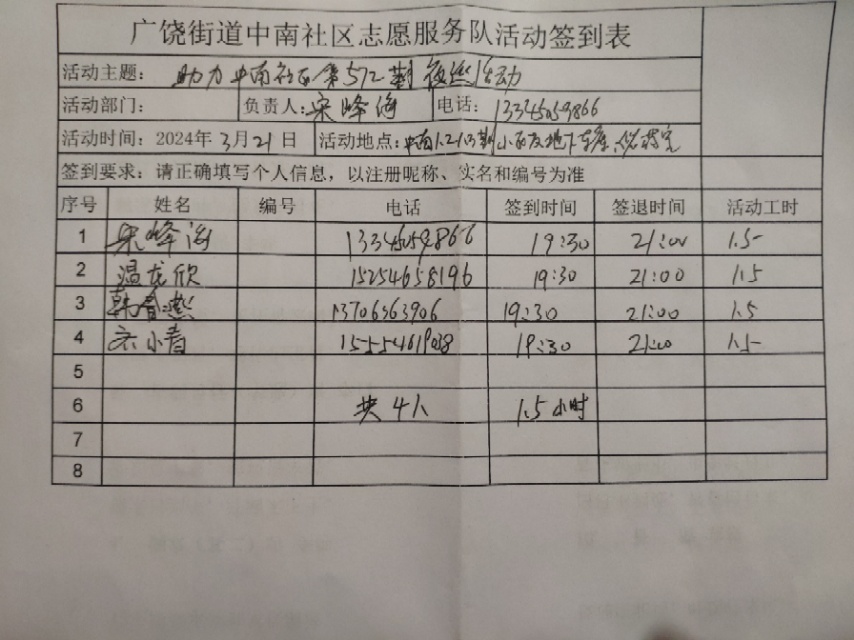 广饶街道中南社区志愿服务队活动签到表
活动主题： 助力中南社区第572期夜巡活动
活动部门： 负责人：宋峰海 电话：13345059866
活动时间：2024年3月21日 活动地点：中南1.2.1.3期小区及地下车库
签到要求：请正确填写个人信息，以注册昵称、实名和编号为准
序号 姓名 编号 电话 签到时间 签退时间 活动工时
1 宋峰海 13345059866 19:30 21:00 1.5
2 温龙欣 15254658196 19:30 21:00 1.5
3 韩春燕 13706363906 19:30 21:00 1.5
4 宋小青 15554619038 19:30 21:00 1.5
5
6 共4人 1.5小时
7
8